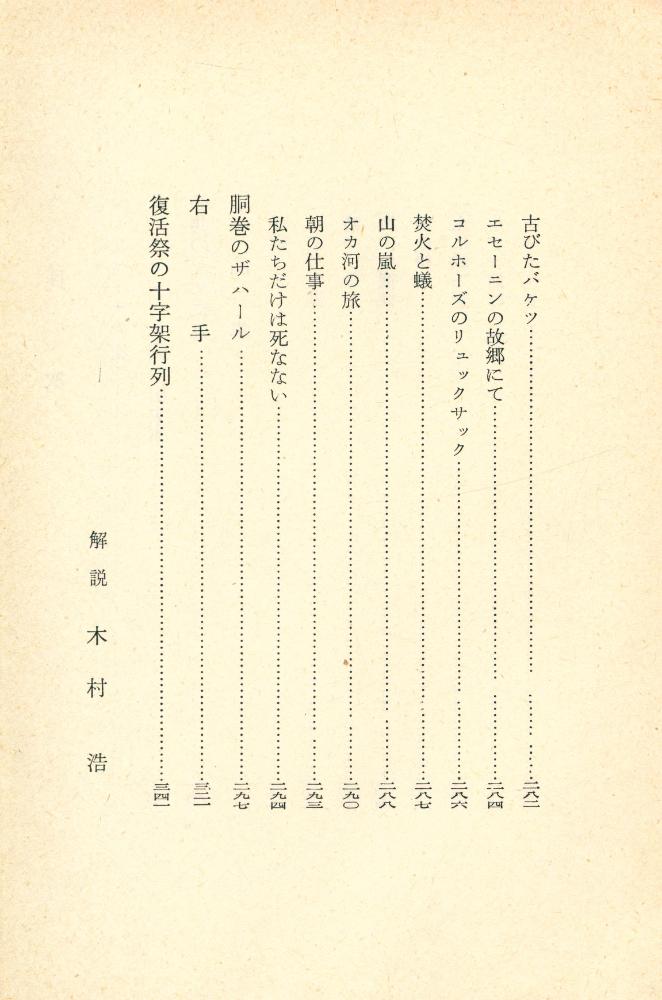 古びたバケツ……二八二
エセーニンの故郷にて……二八四
コルホーズのリュックサック……二八六
焚火と蟻……二八七
山の嵐……二八八
オカ河の旅……二九〇
朝の仕事……二九三
私たちだけは死なない……二九四
胴巻のザハール……二九七
右手……三二一
復活祭の十字架行列……三四一
解説 木村浩